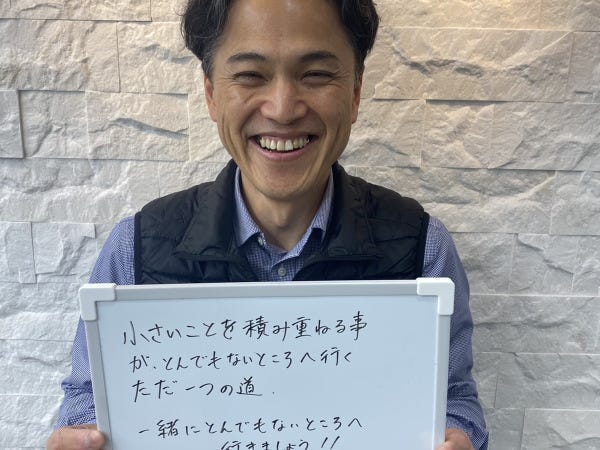 小さいことを積み重ねる事
が、とんでもないところへ行く
ただ一つの道.
一緒にとんでもないところへ
行きましょう!!